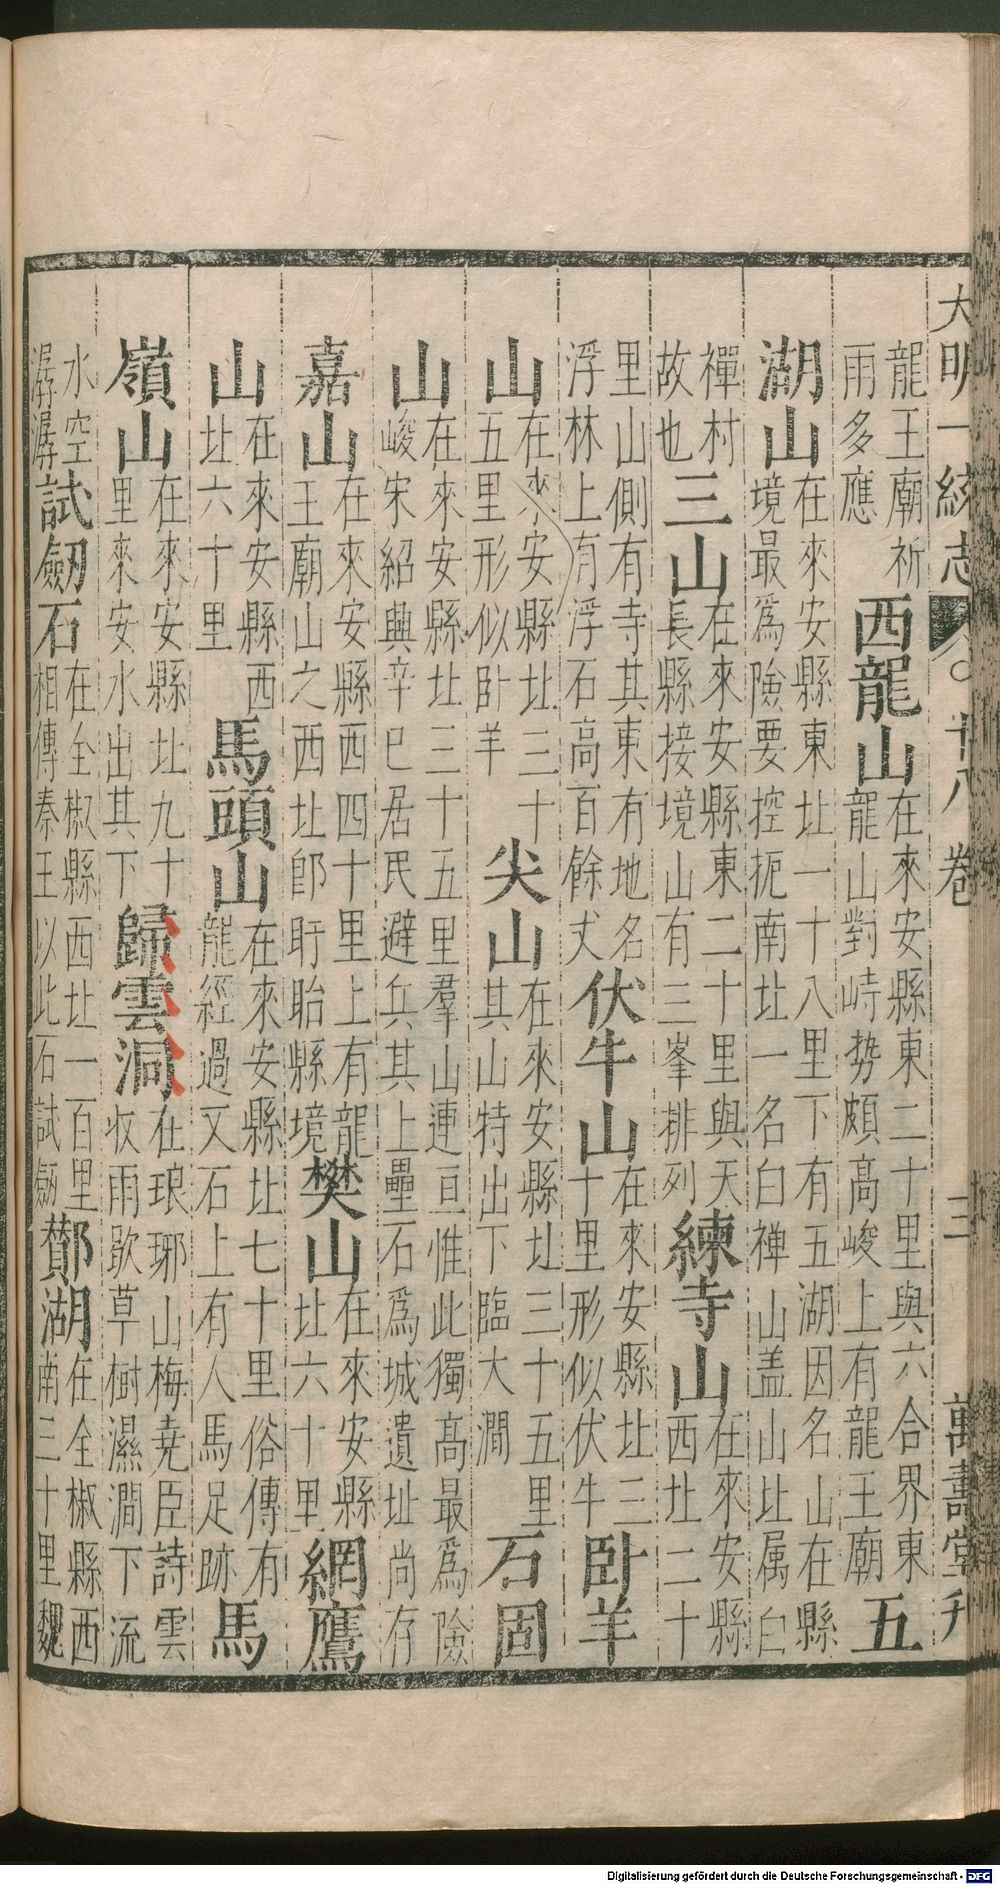 大明一統志 〇 十八卷 三 萬壽堂刋
龍王廟祈雨多應 西龍山 在來安縣東二十里與六合界東龍山對峙勢頗高峻上有龍王廟 五
湖山 在來安縣東北一十八里下有五湖因名山在縣境最爲險要控扼南北一名白禪山盖山北属白
禪村故也 三山 在來安縣東二十里與天長縣接境山有三峯排列 練寺山 在來安縣西北二十
里山側有寺其東有地名浮林上有浮石高百餘丈 伏牛山 在來安縣北三十里形似伏牛 卧羊
山 在來安縣北三十五里形似卧羊 尖山 在來安縣北三十五里其山特出下臨大澗 石固
山 在來安縣北三十五里羣山連亘惟此獨高最爲險峻宋紹興辛巳居民避兵其上壘石爲城遺址尚存
嘉山 在來安縣西四十里上有龍王廟山之西北卽盱眙縣境 樊山 在來安縣北六十里 網鷹
山 在來安縣西北六十里 馬頭山 在來安縣北七十里俗傳有龍經過又石上有人馬足跡 馬
嶺山 在來安縣北九十里來安水出其下 歸雲洞 在琅琊山梅堯臣詩雲收雨歇草樹濕澗下流
水空潺潺 試劒石 在全椒縣西北一百里相傳秦王以此石試劒 酇湖 在全椒縣西南三十里魏
Digitalisierung gefördert durch die Deutsche Forschungsgemeinschaft - DFG